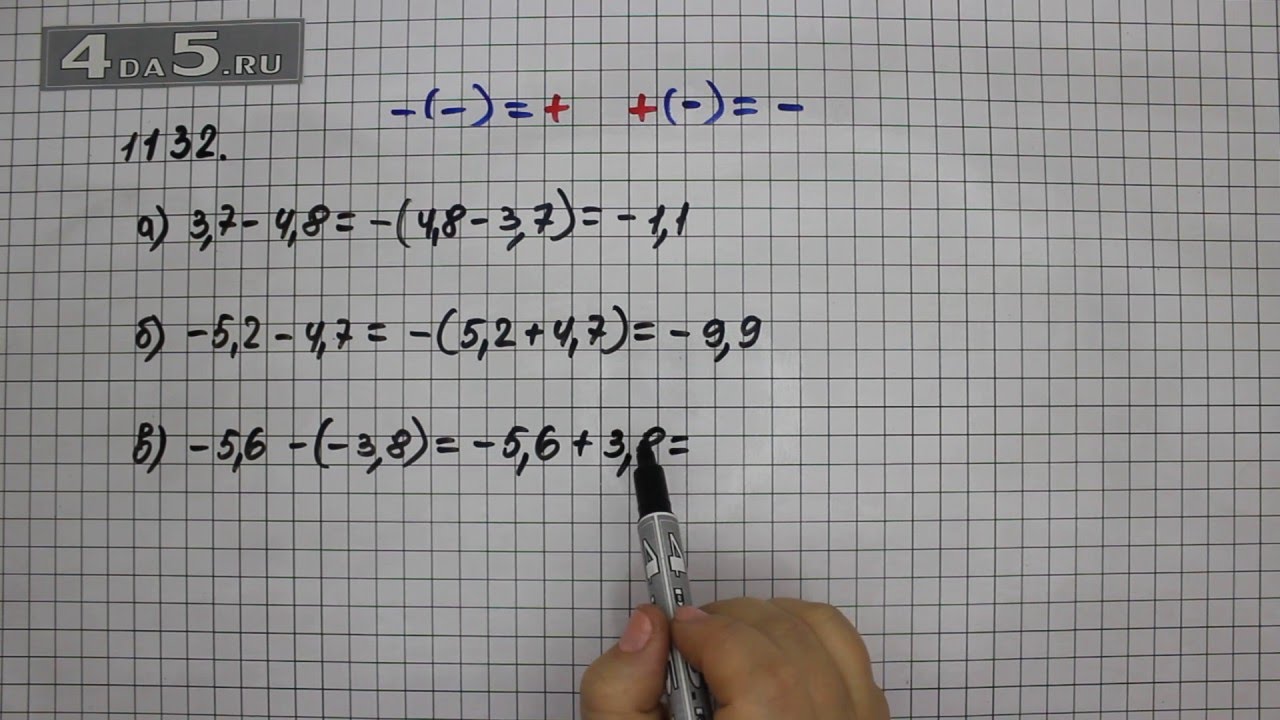 4DA5.RU
-(-) = + +(-) = -
1132.
а) 3,7 - 4,8 = -(4,8 - 3,7) = -1,1
б) -5,2 - 4,7 = -(5,2 + 4,7) = -9,9
в) -5,6 -(-3,8) = -5,6 + 3,8 =